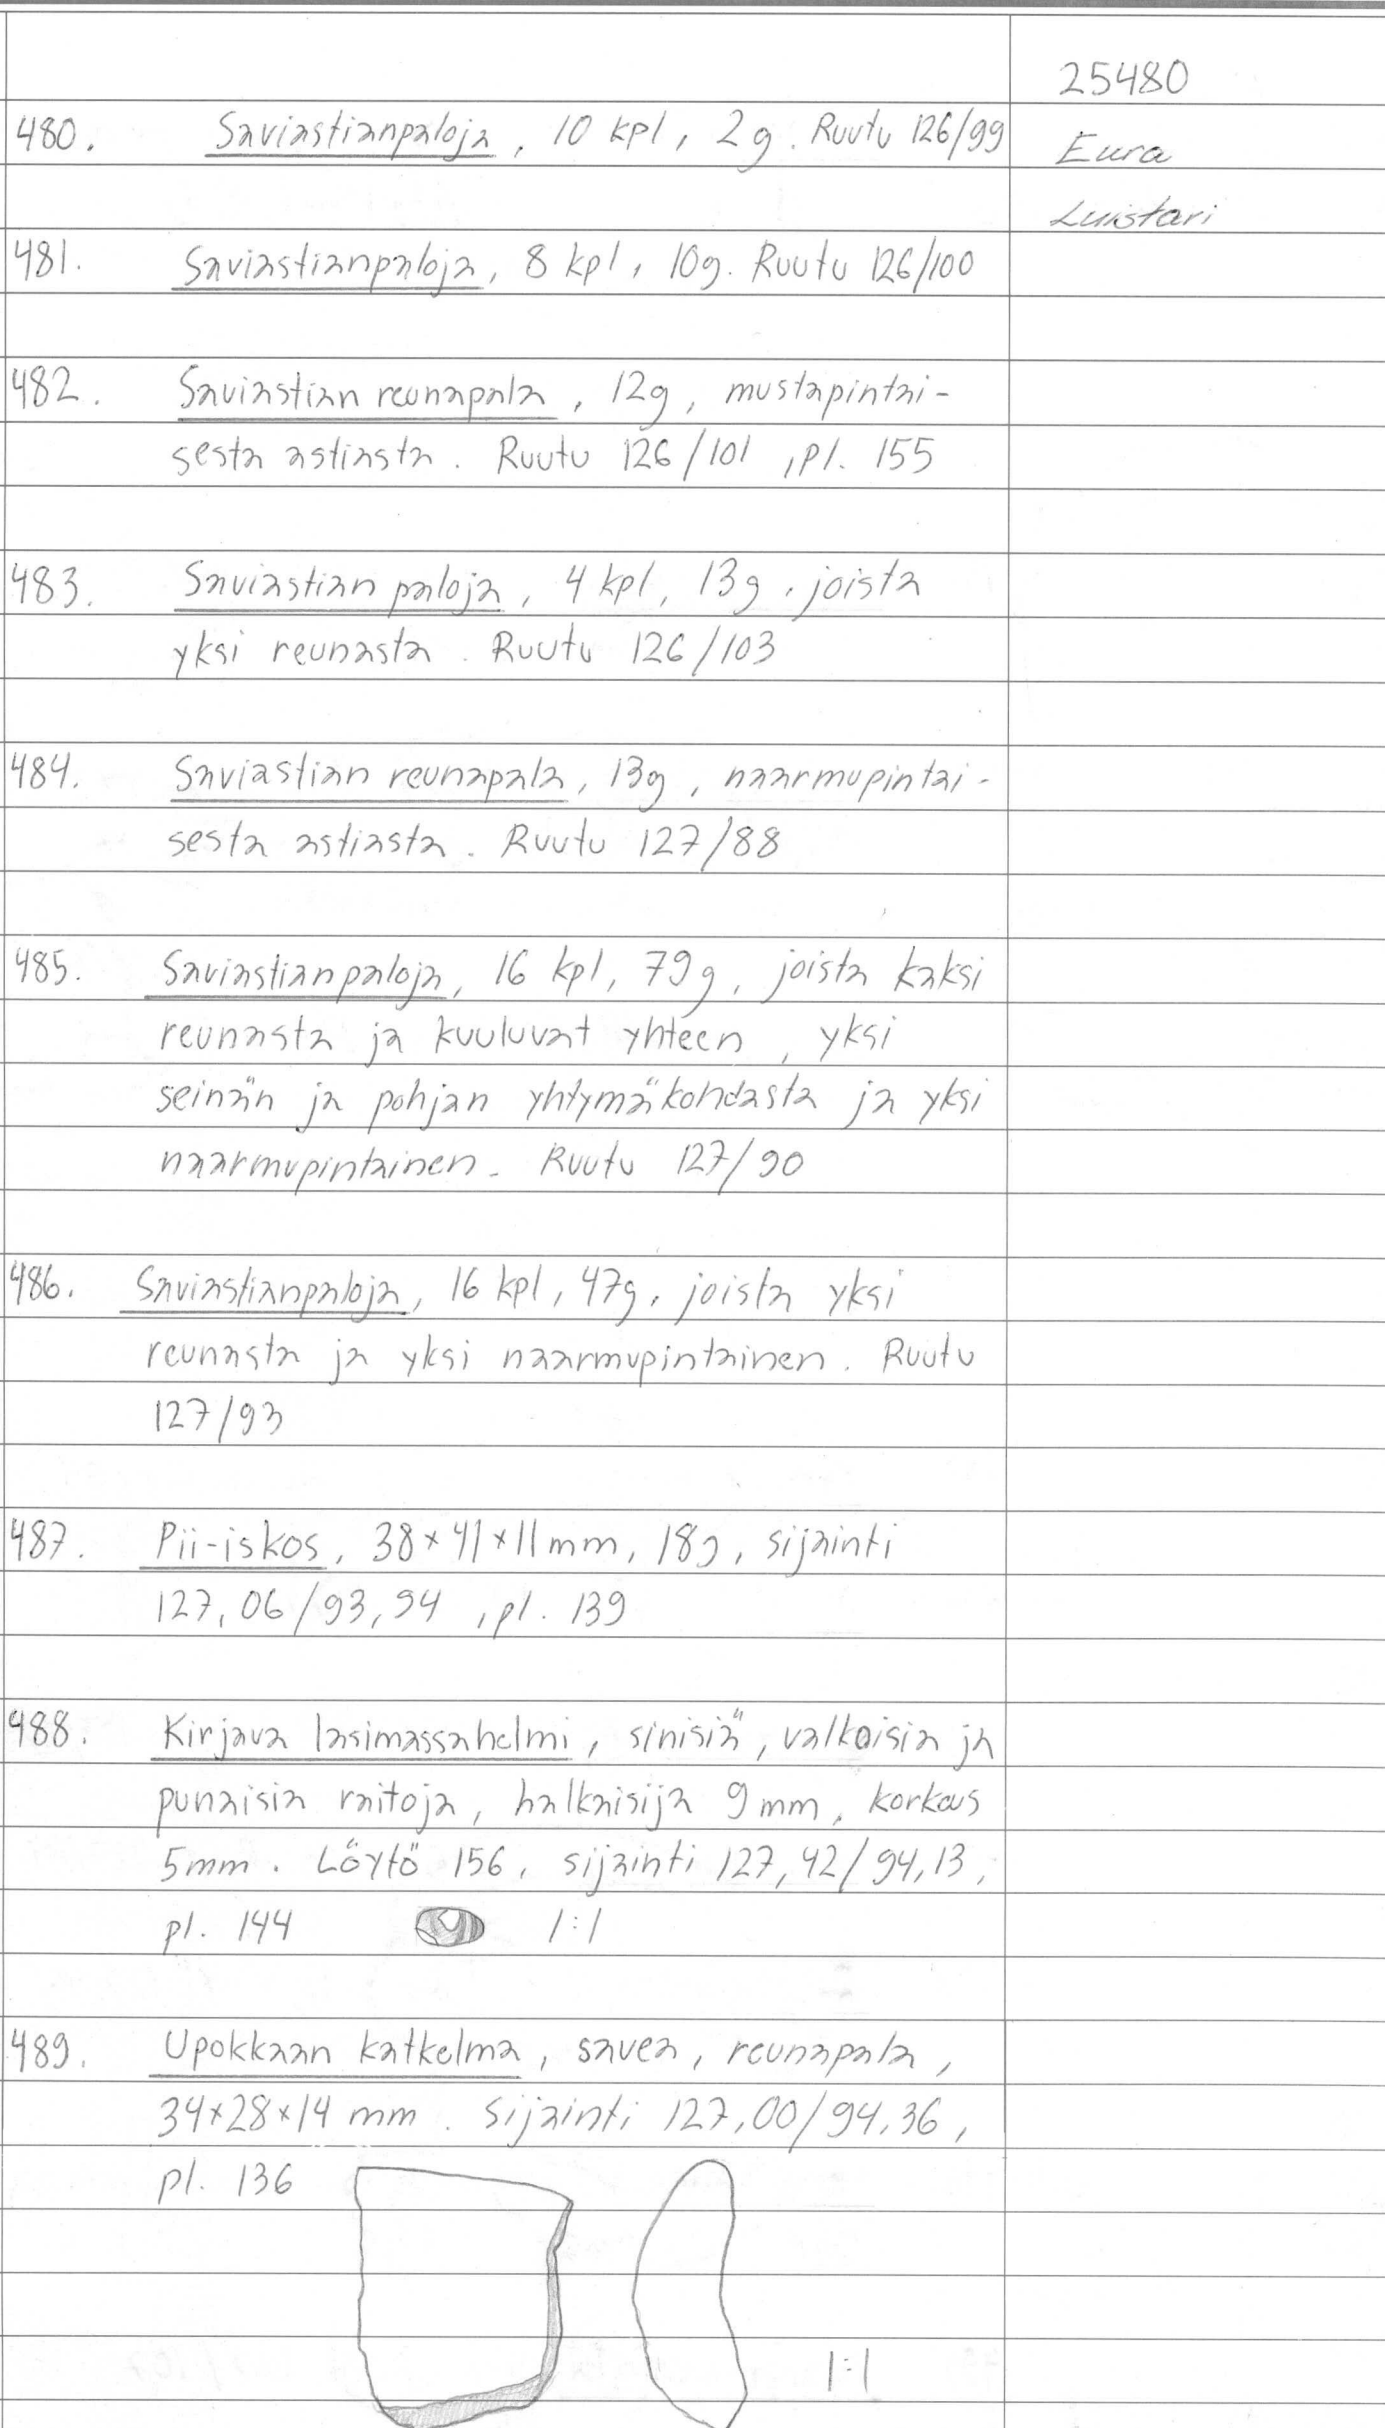 25480
Eura
Luistari
480. Saviastianpaloja, 10 kpl, 2g. Ruutu 126/99
481. Saviastianpaloja, 8 kpl, 10g. Ruutu 126/100
482. Saviastian reunapala, 12g, mustapintai-
sesta astiasta. Ruutu 126/101, pl. 155
483. Saviastian paloja, 4 kpl, 13g, joista
yksi reunasta. Ruutu 126/103
484. Saviastian reunapala, 13g, naarmupintai-
sesta astiasta. Ruutu 127/88
485. Saviastianpaloja, 16 kpl, 79g, joista kaksi
reunasta ja kuuluvat yhteen, yksi
seinän ja pohjan yhtymäkohdasta ja yksi
naarmupintainen. Ruutu 127/90
486. Saviastianpaloja, 16 kpl, 47g, joista yksi
reunasta ja yksi naarmupintainen. Ruutu
127/93
487. Pii-iskos, 38×41×11mm, 18g, sijainti
127,06/93,94, pl. 139
488. Kirjava lasimassahelmi, sinisiä, valkoisia ja
punaisia raitoja, halkaisija 9mm, korkeus
5mm. Löytö 156, sijainti 127,42/94,13,
pl. 144 1:1
489. Upokkaan katkelma, savea, reunapala,
34×28×14 mm. Sijainti 127,00/94,36,
pl. 136
1:1